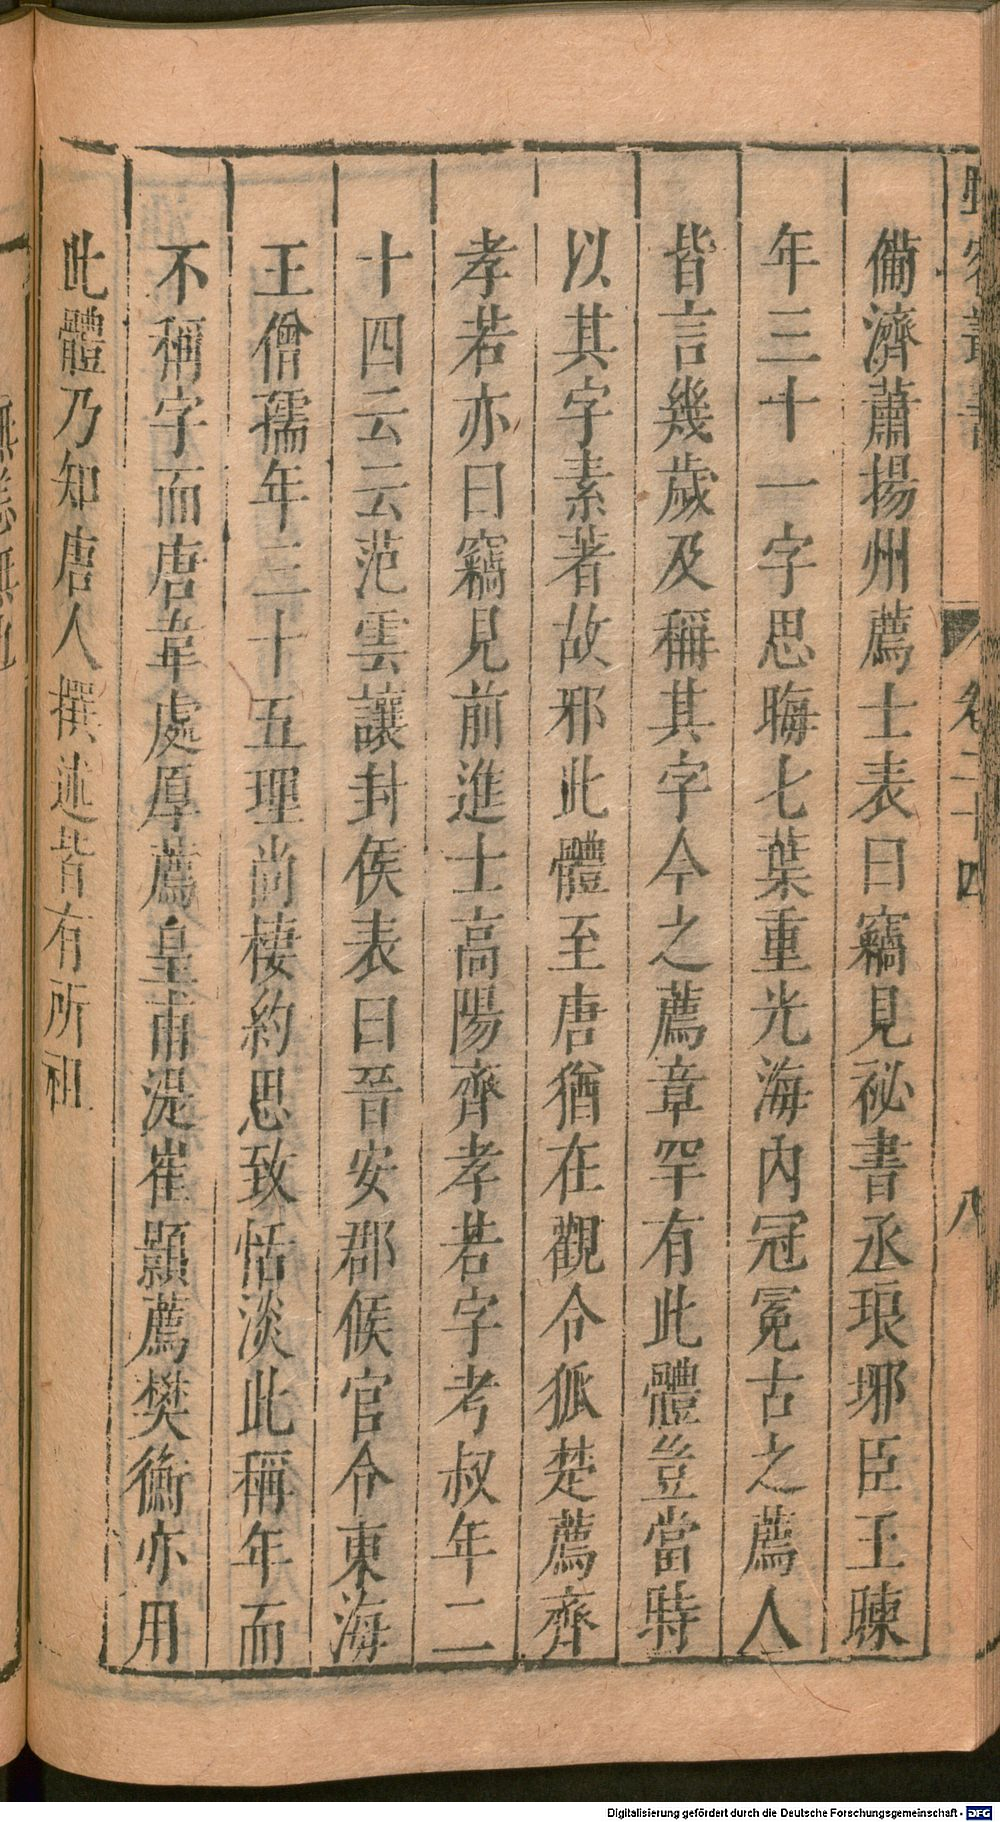 野客叢書　卷二十四　八
備濟蕭揚州薦士表曰竊見祕書丞琅琊臣王暕
年三十一字思晦七葉重光海內冠冕古之薦人
皆言幾歲及稱其字今之薦章罕有此體豈當時
以其字素著故邪此體至唐猶在觀令狐楚薦齊
孝若亦曰竊見前進士高陽齊孝若字考叔年二
十四云云范雲讓封侯表曰晉安郡候官令東海
王僧孺年三十五理尚棲約思致恬淡此稱年而
不稱字而唐韋處厚薦皇甫湜崔顥薦樊衡亦用
此體乃知唐人撰述皆有所祖
Digitalisierung gefördert durch die Deutsche Forschungsgemeinschaft - DFG